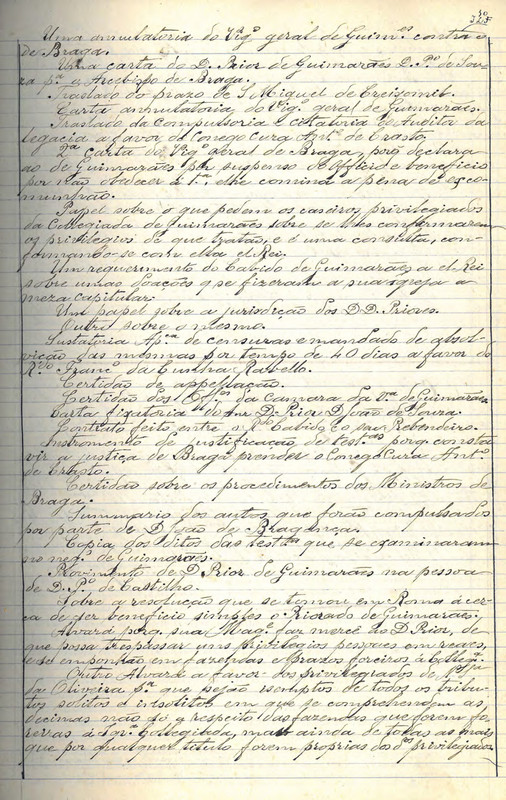 Uma annulatoria do Vigº geral de Guim.es contra o
de Braga.
Uma carta do D. Prior de Guimarães D. Pº de Sou-
za pª o Arcebispo de Braga.
Traslado do prazo de S. Miguel de Creixomil.
Carta annulatoria do Vigº geral de Guimarães.
Traslado da Compulsoria e citatoria do Auditor da
legacia a favor do Conego Cura Antº de Crasto.
2ª Carta do Vigº geral de Braga, porq declara
ao de Guimarães por suspenso do officio e beneficio
por não obedecer á 1ª e lhe comina a pena de exco-
munhão.
Papel sobre o que pedem os caseiros privilegiados
da Collegiada de Guimarães sobre se lhes confirmarem
os privilegios de que tratão, e é uma consulta, con-
formando-se com ella el Rei.
Um requerimento do Cabido de Guimarães a el Rei
sobre umas doações q se fizeram a sua igreja e
meza capitular.
Um papel sobre a jurisdição dos D.D. Priores.
Outro sobre o mesmo.
Sustatoria Ap.ca de censuras e mandado de absol-
vição das mesmas por tempo de 40 dias a favor do
R.do Franc.º da Cunha Rabello.
Certidão de appellação.
Certidão dos Off.es da Camara da Vª de Guimarães.
Carta do Snr D. Prior D. João de Souza.
Contrato feito entre o R.do Cabido e o seu Rebendeiro.
Instrumento de justificação de test.as porq consta
vir a justiça de Braga prender o Conego Cura Antº
de Crasto.
Certidão sobre os procedimentos dos Ministros de
Braga.
Summario dos autos que forão compulsados
por parte de D. João de Bragança.
Copia dos ditos das test.as que se examinaram
no neg.º de Guimarães.
Movimento de D. Prior de Guimarães na pessoa
de D. Pº de Castilho.
Sobre a resolução que se tomou em Roma ácer-
ca de ser beneficio simples o Priorado de Guimarães.
Alvará porq. sua Mag.e faz mercê ao D. Prior, de
que possa trespassar uns privilegios pessoaes em reaes,
e se emponhão em fazendas e prazos foreiros á Colleg.
Outro Alvará a favor dos privilegiados de N. Srª
da Oliveira pª que sejão isemptos de todos os tribu-
tos solitos e insolitos em que se comprehendem as
decimas não só a respeito das fazendas que forem fo-
reiras á Collegiada, mas ainda de todas as mais
que por qualquer titulo forem proprias dos dos privilegiados